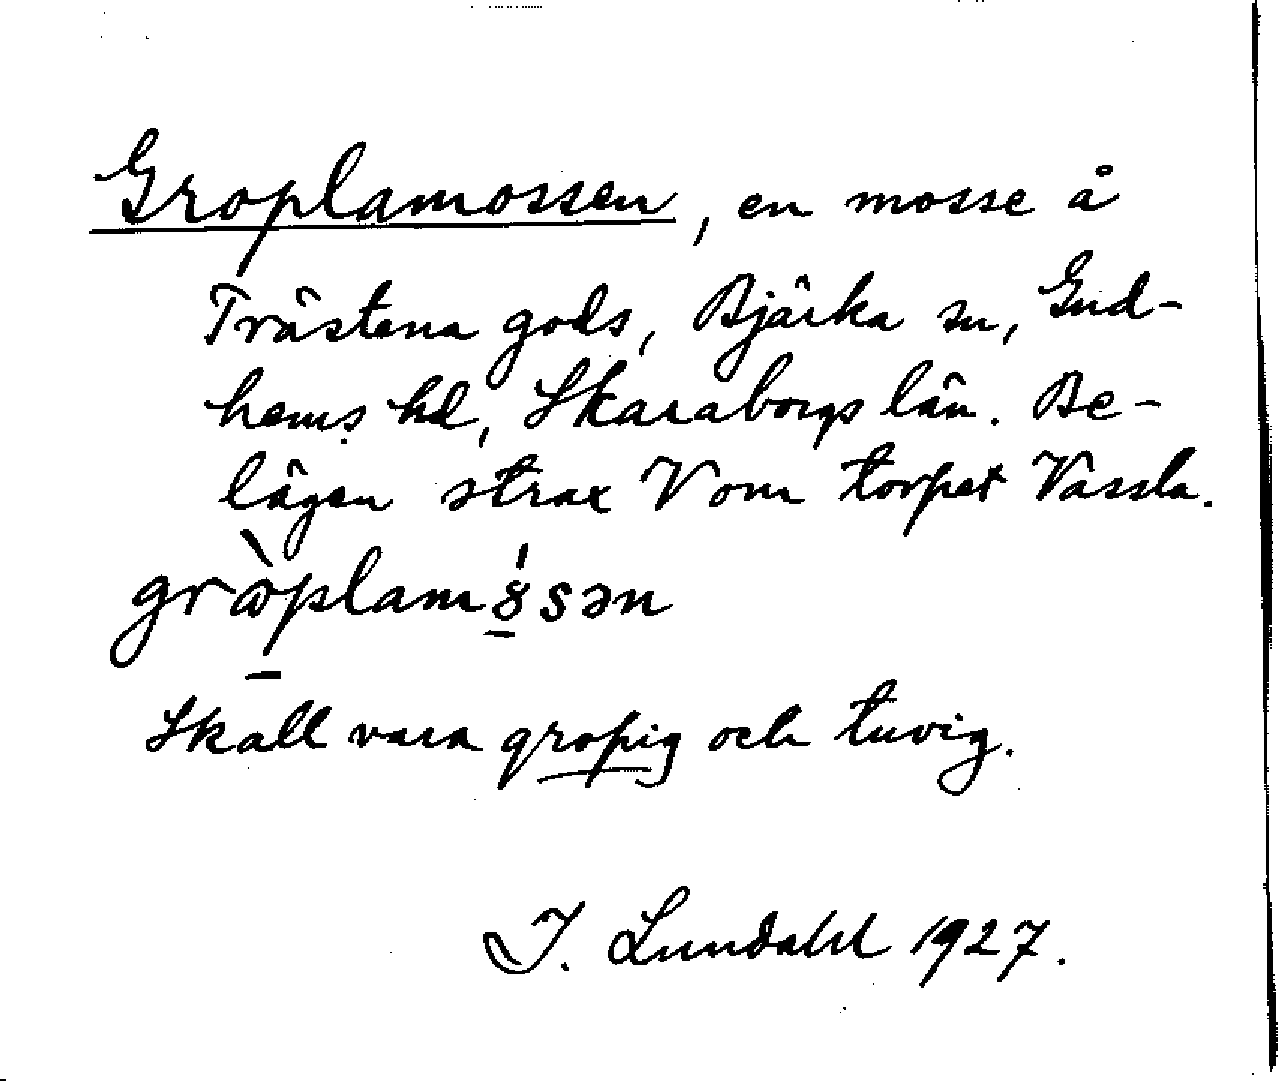 Groplamossen, en mosse å
Trästena gods, Bjärka sn, Gud-
hems hd, Skaraborgs län. Be-
lägen strax V om torpet Vassla.
Skall vara gropig och tuvig.
I. Lundahl 1927.